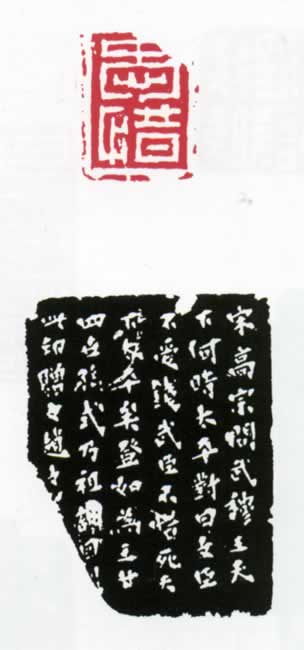 宋高宗問武穆王天
下何時太平對曰文臣
不愛錢武臣不惜死天
下太平矣登如為王廿
四世孫式乃祖訓
此印贈之趙